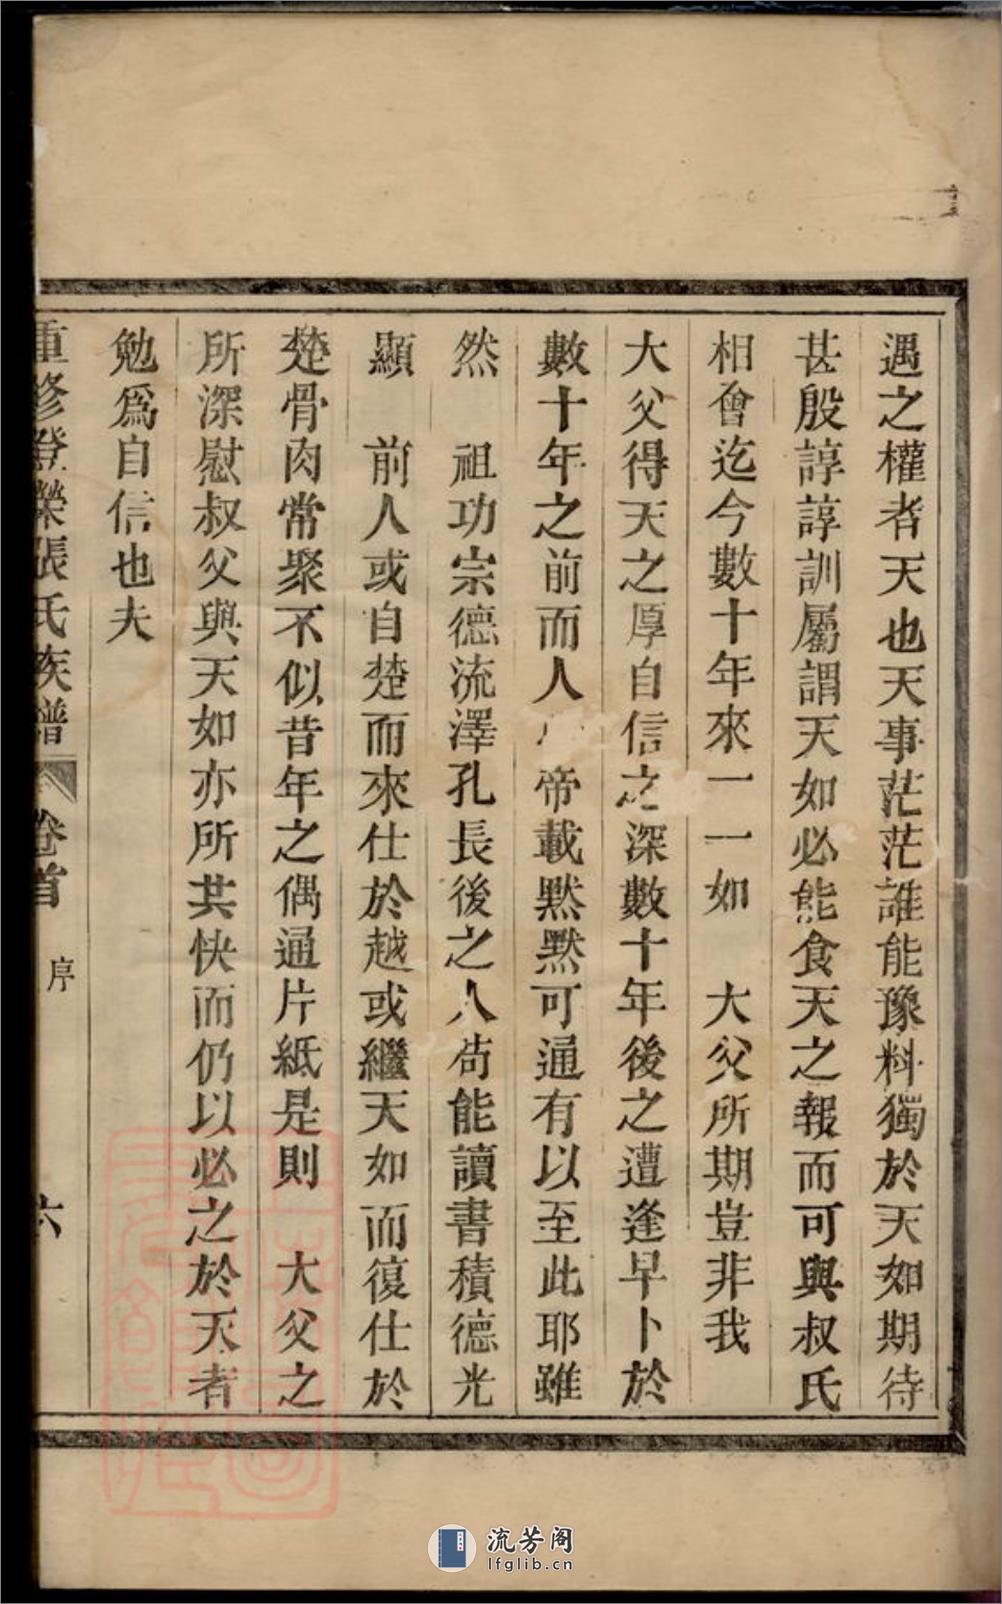 遇之權者天也天事茫茫誰能豫料獨於天如期待
甚殷諄諄訓屬謂天如必能食天之報而可與叔氏
相會迄今數十年來一一如　大父所期豈非我
大父得天之厚自信之深數十年後之遭逢早卜於
數十年之前而人帝載默默可通有以至此耶雖
然　祖功宗德流澤孔長後之人苟能讀書積德光
顯　前人或自楚而來仕於越或繼天如而復仕於
楚骨肉常聚不似昔年之偶通片紙是則　大父之
所深慰叔父與天如亦所共快而仍以必之於天者
勉為自信也夫
重修登榮張氏族譜　卷首　序　六
流芳阁
lfglib.cn